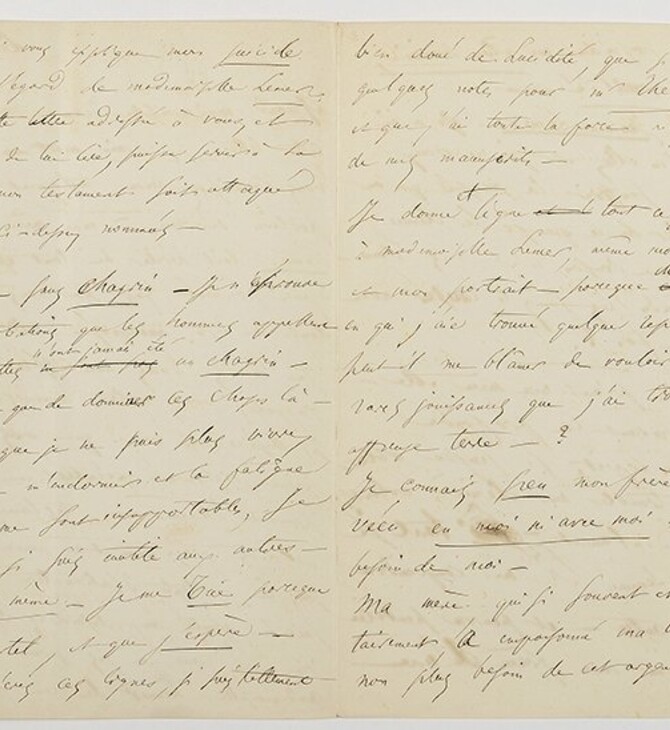 vous explique mon suicide
l'égard de mademoiselle Lemer
lettre adressée à vous, et
de lui lire, puisse servir à sa
mon testament soit attaqué
ci-dessus nommés —
— sans chagrin — Je n'éprouve
que les hommes appellent
n'ont jamais été
ne sont pas un chagrin —
que de dominer ces choses là —
que je ne puis plus vivre,
m'endormir et la fatigue
me sont insupportables, Je
je suis inutile aux autres —
même — Je me tue parceque
et que j'espère —
ces lignes, je suis tellement
bien doué de lucidité, que je
quelques notes pour mr
et que j'ai toute la force
de mes manuscrits —
Je donne et lègue et tout ce
à mademoiselle Lemer, même mon
et mon portrait — parceque
en qui j'aie trouvé quelque
peut-il me blâmer de vouloir
rares jouissances que j'ai
affreuse terre — ?
Je connais peu mon frère
vécu en moi ni avec moi
besoin de moi —
Ma mère qui si souvent et
a empoisonné ma
non plus besoin de cet argent